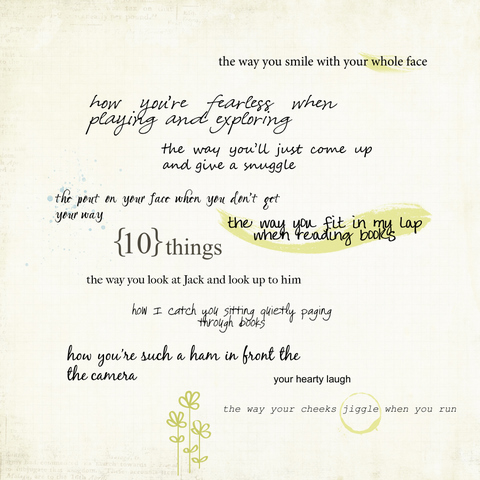 the way you smile with your whole face
how you're fearless when
playing and exploring
the way you'll just come up
and give a snuggle
the pout on your face when you don't get
your way
the way you fit in my lap
when reading books
{10} things
the way you look at Jack and look up to him
how I catch you sitting quietly paging
through books
how you're such a ham in front the
the camera
your hearty laugh
the way your cheeks jiggle when you run